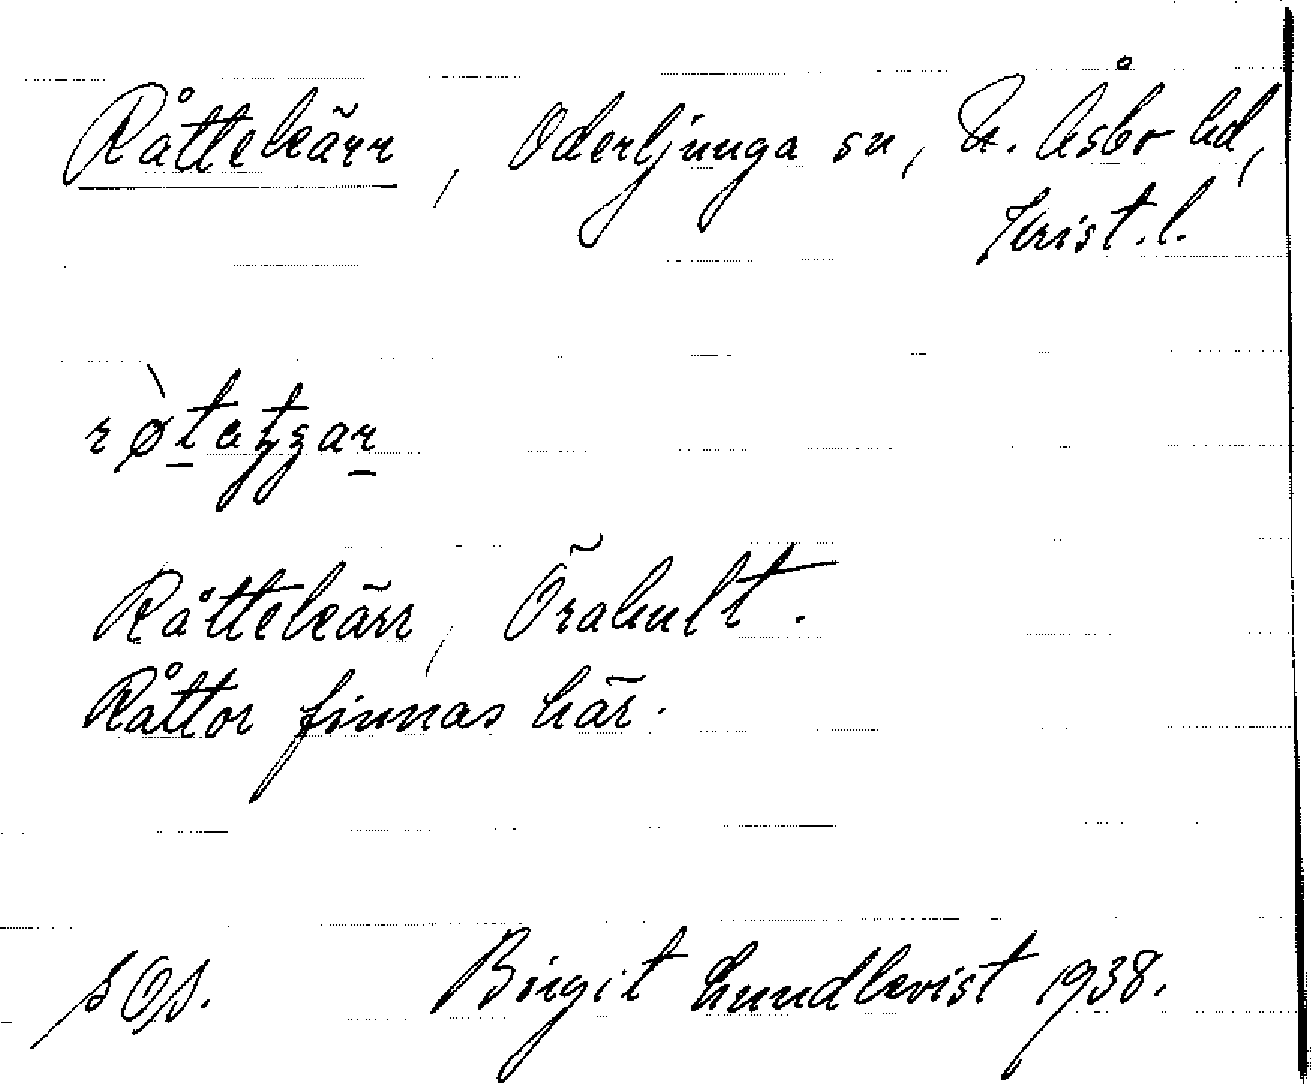 Råttekärr, Oderljunga sn, N. Åsbo hd,
Krist. l.
Råttekärr, Örahult.
Råttor finnas här.
Birgit Lundkvist 1938.